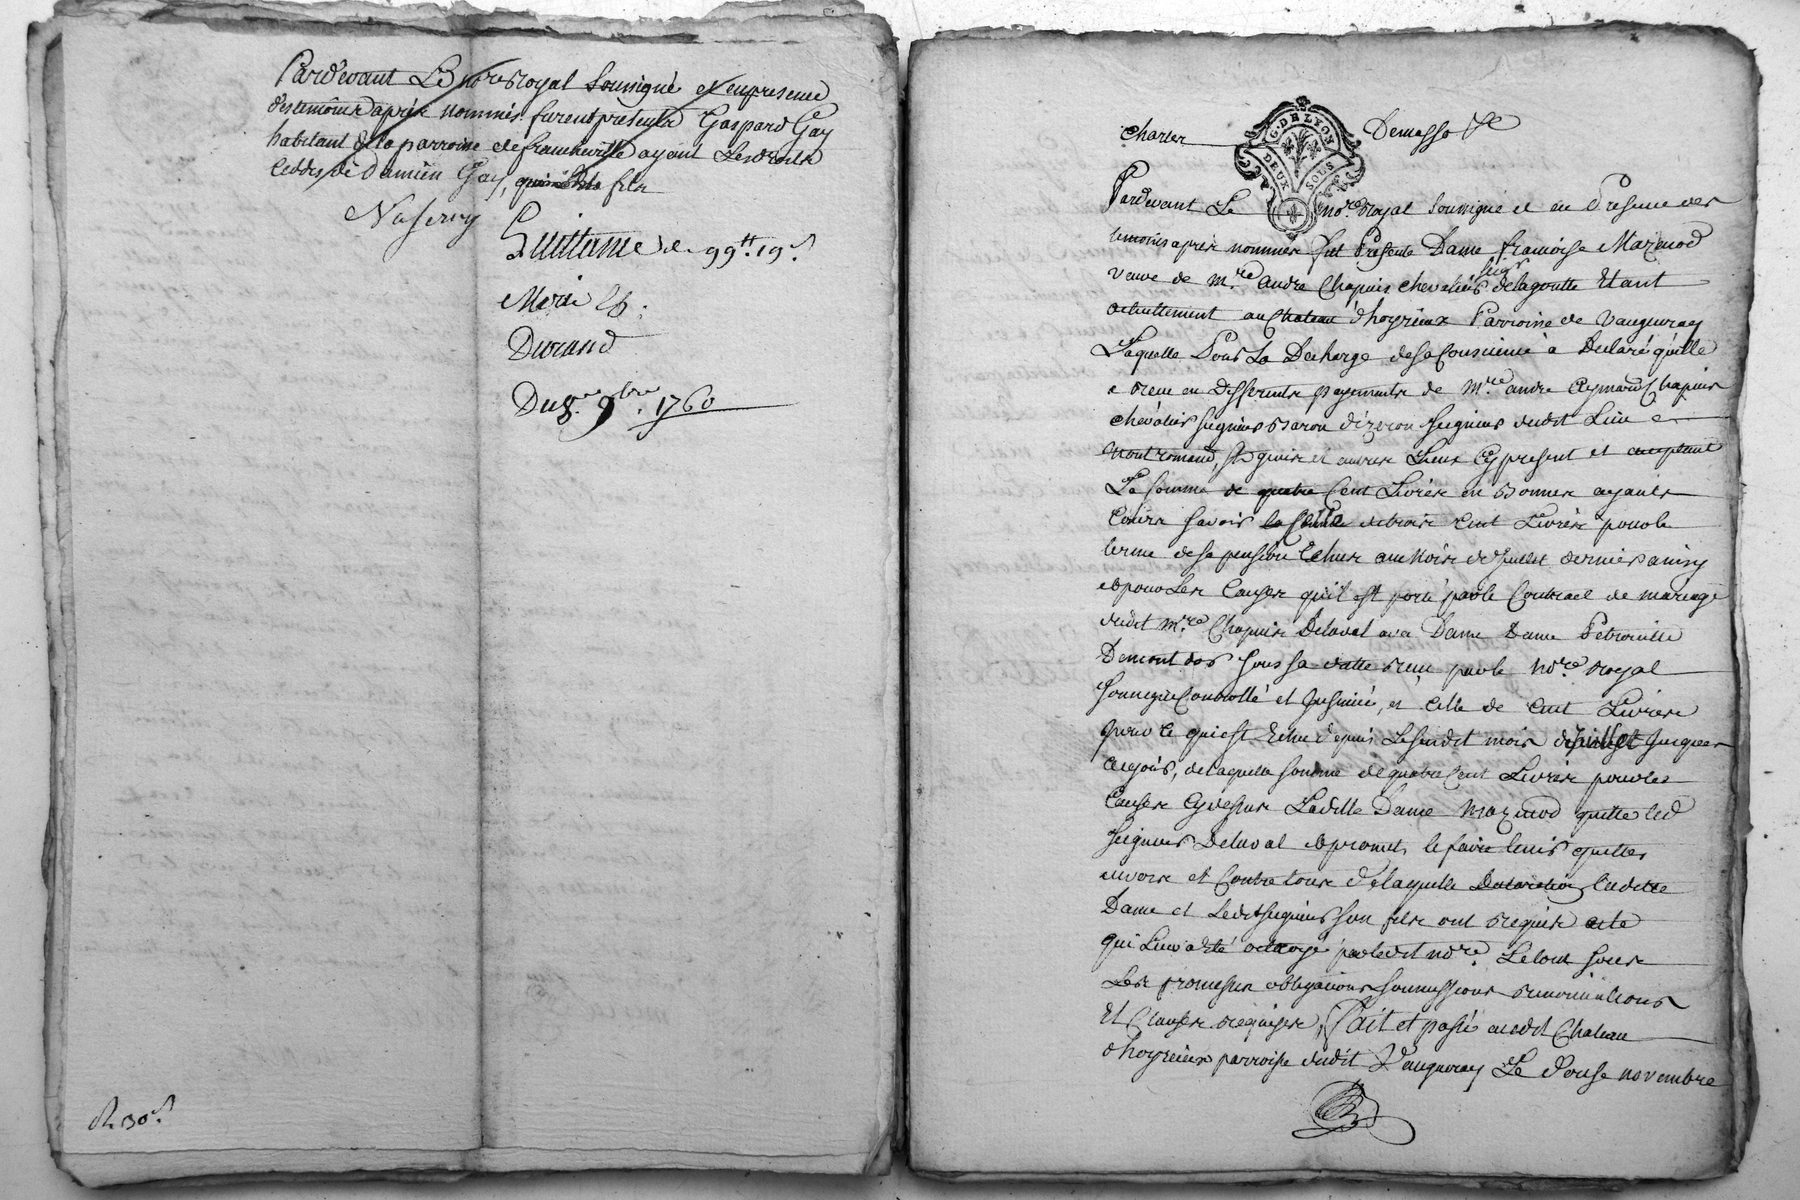 Pardevant Le no.re Royal Soussigné et en presence
des temoins après nommés furent presents Gaspard Gay
habitant de la parroisse de francheville ayant Les droits
ceddés de Damien Gay, fils
Na servy
Quittance de 99.tt 19.s
Marie
Durand
Du 8.e 9.bre 1760
R. 30.s
G. DE LYON
DEUX SOLS
Pardevant Le no.re Royal Soussigné et en Presence des
temoins après nommés fut Presente Dame françoise Mazenod
veuve de m.re andré Chapuis chevalier seig.r delagoutte Etant
actuellement au Chateau d'hoyrieux Parroisse de Vaugneray
Laquelle Pour La Decharge de sa Conscience à Declaré quelle
a Receu en Differents payements de M.re andré Aymard Chapuis
chevalier seigneur Baron d'izeron seigneur dudit Lieu
Montromand, et autres Lieux Cy present et acceptant
La somme de quatre Cent Livres en Bonnes ayants
Cours savoir celle de trois cent Livres pour le
terme de sa pension Echue au Mois de Juillet dernier ainsy
et pour Les Causes qu'il est porté par le Contract de mariage
dudit m.re Chapuis Delaval avec Dame Dame Petronille
Demont dor sous sa datte Receu par le no.re Royal
soussigné Controllé et Insinué, et Celle de Cent Livres
pour ce qui est Echu depuis Le susdit mois de Juillet Jusques
aujour, de laquelle somme de quatre Cent Livres pour les
Causes cy dessus Ladite Dame Mazenod quitte led
seigneur Delaval et promet le faire tenir quitte
envers et Contre tous de laquelle Declaration ladite
Dame et Ledit seigneur son fils ont Requis acte
qui Leur a Eté octroyé par ledit no.re Le tout sous
Les promesses obligations soumissions renonciations
Et Clauses Requises, fait et passé audit Chateau
d'hoyrieux parroisse dudit Vaugneray Le Douse novembre